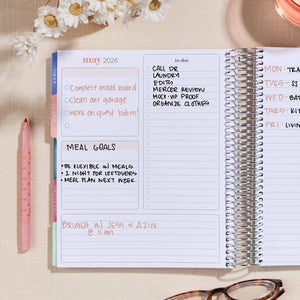 may 2026
to-dos
Complete mood board
Clean out garage
Work on guest bdrm!
CALL DR
LAUNDRY
EDITS
MERCER REVIEW
MOCK-UP PROOF
ORGANIZE CLOTHES
MEAL GOALS
• BE FLEXIBLE W/ MEALS
• 1 NIGHT FOR LEFTOVERS
• MEAL PLAN NEXT WEEK
BRUNCH W/ JESS & AZIN
@ 11 AM
MON -
TUES -
WED -
THRS -
FRI